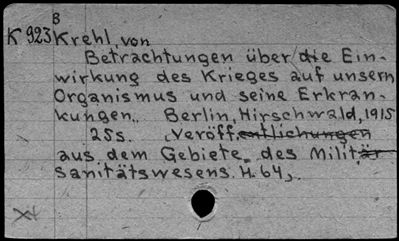 B
K 923 Krehl, von
Betrachtungen über die Ein-
wirkung des Krieges auf unsern
Organismus und seine Erkran-
kungen. Berlin, Hirschwald, 1915
25s. (Veröffentlichungen
aus dem Gebiete des Militär
sanitätswesens. H. 64).